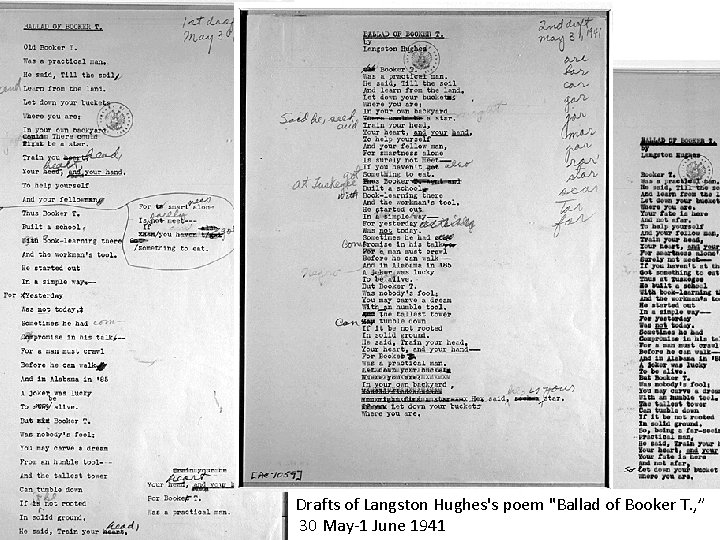 BALLAD OF BOOKER T.
1st draft
May 30
Old Booker T.
Was a practical man.
He said, Till the soil
and Learn from the land.
Let down your bucket
Where you are;
In your own backyard
There could
be a star.
Train your head,
Your heart, and your hand.
To help yourself
And your fellowman,
Thus Booker T.
Built a school,
book-learning there
And the workman's tool.
He started out
In a simple way—
For Yesterday
Was not today.
Sometimes he had com
Compromise in his talk—
For a man must crawl
Before he can walk
And in Alabama in '85
A joker was lucky
To be alive.
But
Was nobody's fool;
You may carve a dream
From an humble tool--
And the tallest tower
Can tumble down
If it is not rooted
In solid ground.
He said, Train your head,
For smartness alone
Is surely not meet---
If
you haven't
something to eat.
heart
Your head, and your h
For Booker T.
Was a practical man.
BALLAD OF BOOKER T.
by
Langston Hughes
2nd draft
May 31, 1941
are
bar
car
gar
jar
mar
par
star
scar
tar
far
Booker T.
Was a practical man.
He said, Till the soil
And learn from the land,
Let down your bucket
Where you are;
In your own backyard
a star.
Train your head,
Your heart, and your hand.
To help yourself
And your fellow man,
For smartness alone
Is surely not meet—
If you haven't also
Something to eat.
At Tuskegee
Built a school,
with Book-learning there
And the workman's tool.
He started out
In a simple way—
For yesterday
Was not today.
Sometimes he had
Compromise in his talk—
For a man must crawl
Before he can walk
And in Alabama in '85
A joker was lucky
To be alive.
But Booker T.
Was nobody's fool;
You may carve a dream
With an humble tool.
the tallest tower
Can tumble down
If it be not rooted
In solid ground.
He said, Train your head,
Your heart, and your hand—
For Booker T.
Was a practical man.
In your own backyard
He said, star.
Let down your bucket
Where you are.
[AC-1059]
BALLAD OF BOOKER T.
by
Langston Hughes
Booker T.
Was a practical man.
He said, Till the soil
And learn from the l
Let down your bucket
Where you are
Your fate is here
And not afar,
To help yourself
And your fellow man,
Train your head,
Your heart, and your
For smartness alone
Surely not meet—
If you haven't at th
Got something to eat.
Thus at Tuskegee
He built a school
With book-learning th
And the workman's tool
He started out
In a simple way—
For yesterday
Was not today.
Sometimes he had
Compromise in his tal
For a man must crawl
Before he can walk—
And in Alabama in '85
A joker was lucky
To be alive.
But Booker T.
Was nobody's fool;
You may carve a dream
With an humble tool.
The tallest tower
Can tumble down
If it be not rooted
In solid ground.
So, being a far-seein
Practical man,
He said, Train your h
Your heart, and your
Your fate is here
And not afar,
So Let down your bucket
Where you are.
Drafts of Langston Hughes's poem "Ballad of Booker T.,”
30 May-1 June 1941